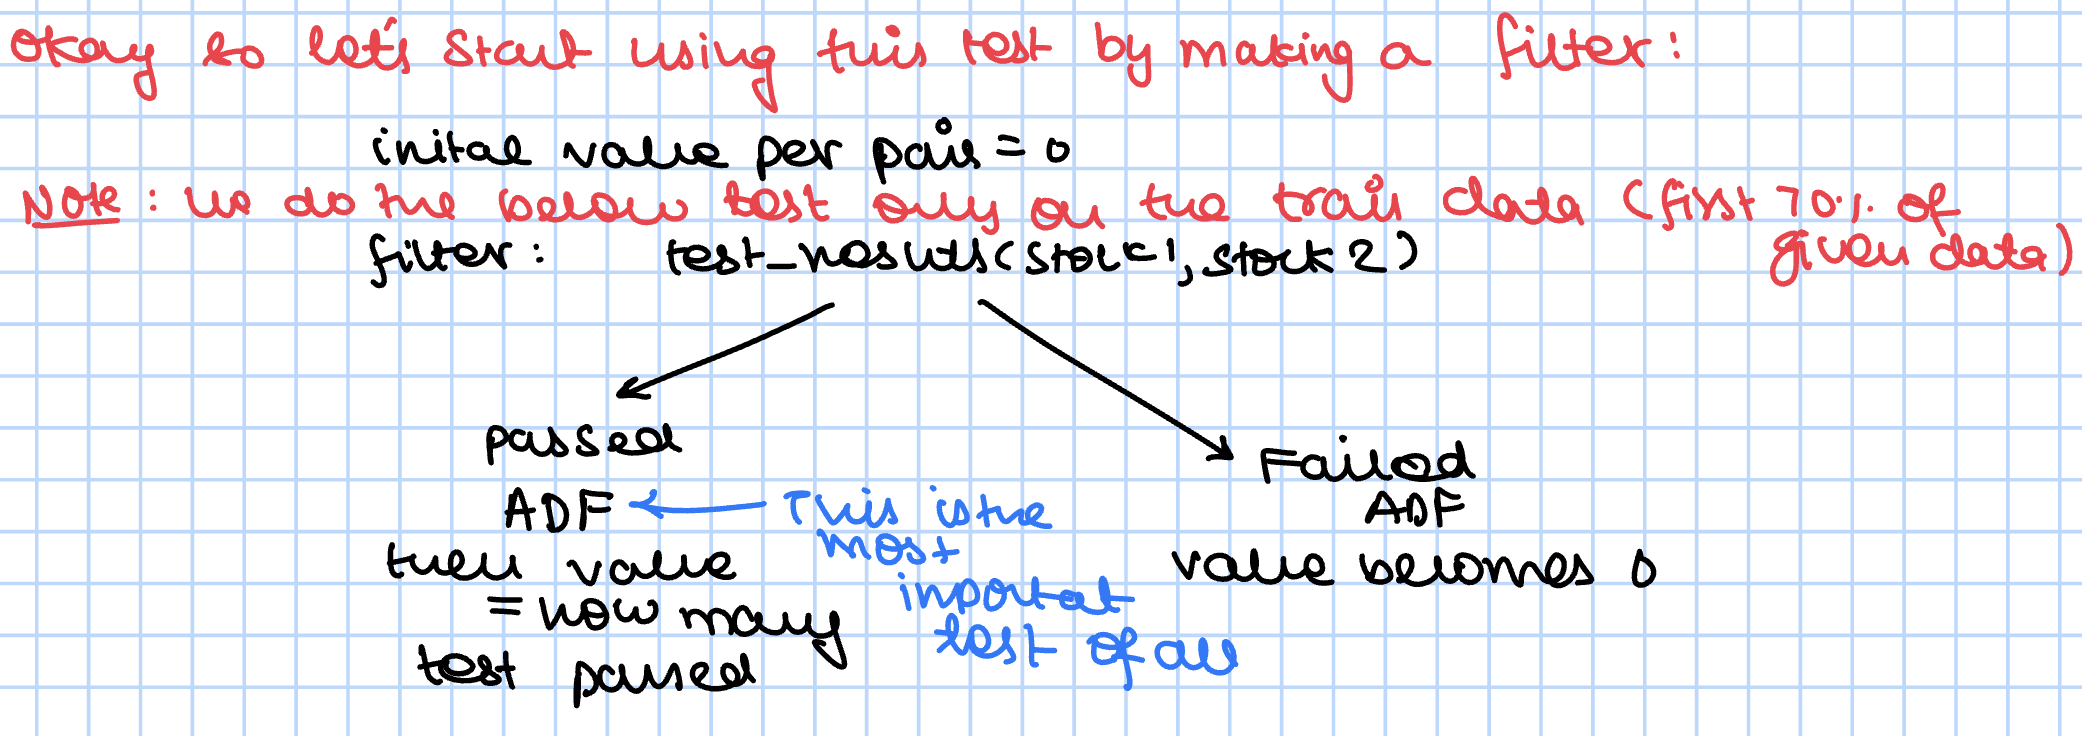 Okay so let's start using this test by making a filter:
inital value per pair = 0
Note: we do the below test only on the train data (first 70% of given data)
filter: test_results(stock1, stock2)
passed
ADF ← This is the
most
importat
test of all
then value
= how many
test passed
Failed
ADF
value becomes 0